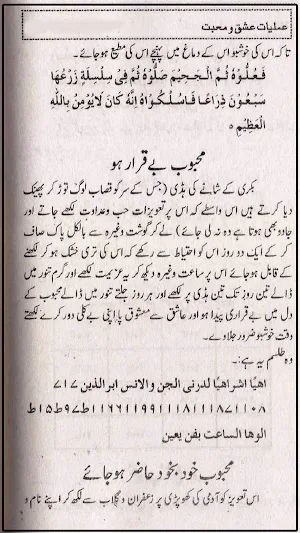 عملیات عشق و محبت
تا کہ اس کی خوشبو اس کے دماغ میں پہنچے اس کی مطیع ہو جائے۔
فَغُلُّوْهُ ثُمَّ الْجَحِيْمَ صَلُّوْهُ ثُمَّ فِیْ سِلْسِلَةٍ زَرْعُهَا
سَبْعُوْنَ ذِرَاعًا فَاسْلُكُوْاهُ اِنَّهٗ كَانَ لَايُؤْمِنُ بِاللّٰهِ
الْعَظِيْمِ ہ
محبوب بے قرار ہو
بکری کے شانے کی ہڈی (جس کے سر کو قصاب لوگ توڑ کر پھینک
دیا کرتے ہیں اس واسطے کہ اس پر تعویزات حب وعداوت لکھے جاتے اور
جادو بھی ہوتا ہے وہ نہ لی جائے) لے کر گوشت وغیرہ سے بالکل پاک صاف
کر کے ایک دو روز اس کو احتیاط سے رکھے کہ اس کی تری خشک ہو کر لکھنے
کے قابل ہو جائے اس پر ساعت وغیرہ دیکھ کر یہ عزیمت لکھے اور گرم تنور میں
ڈالے تین روز تک تین ہڈی پر لکھے اور ہر روز جلتے تنور میں ڈالے محبوب کے
دل میں بے قراری پیدا ہو اور عاشق سے معشوق پا اپنی بے کلی دور کرے لکھتے
وقت خوشبو ضرور جلاوے۔
وہ طلسم یہ ہے:۔
اھیًا اشراھیًا لدرنی الجن والانس ابرالذین ۷۱۷
الوھا الساعت بفن یعین
محبوب خود بخود حاضر ہو جائے
اس تعویز کو آدمی کی کھوپڑی پر زعفران و گلاب سے لکھ کر اپنے نام و